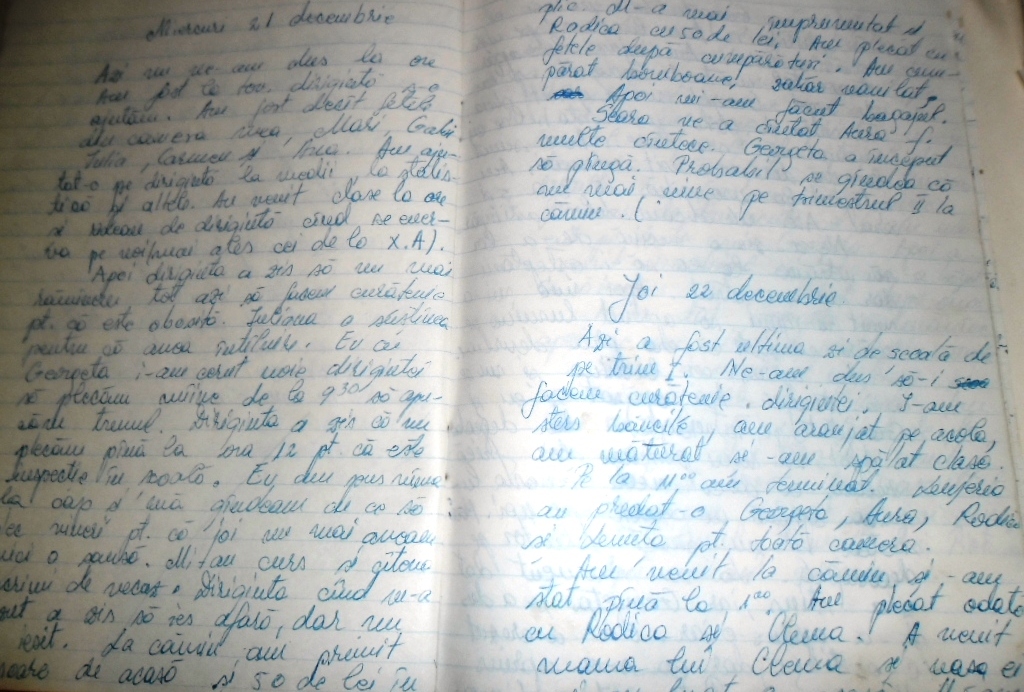 Miercuri 21 decembrie
Azi nu ne-am dus la ore
Am fost la tov. dirigintă s-o
ajutăm. Am fost decît fetele
din camera mea, Mari, Gabi
Iulia, Carmen și Ana. Am aju-
tat-o pe dirigintă la medii, la statis-
tică și altele. Au venit clase la ore
și rîdeau de dirigintă cînd se ener-
va pe noi (mai ales cei de la X.A).
Apoi diriginta a zis să nu mai
rămînem tot azi să facem curățenie
pt. că este obosită. Iuliana a
pentru că avea întîlnire. Eu cu
Georgeta i-am cerut voie dirigintei
să plecăm mîine de la 9³⁰ să
trenul. Diriginta a zis că nu
plecăm pînă la ora 12 pt. că este
inspecție în școală. Eu am pus mîna
la cap și mă gîndeam de ce să
vineri pt. că joi nu mai aveam
nici o șansă. Mi-au curs și
de necaz. Diriginta cînd m-a
a zis să ies afară, dar nu
ieșit. La cămin am primit
de acasă și 50 de lei în
plic. M-a mai împrumutat și
Rodica cu 50 de lei. Am plecat cu
fetele după cumpărături. Am cum-
părat bomboane, zahăr vanilat,
Apoi mi-am făcut bagajul.
Seara ne-a cîntat Aura f.
multe cîntece. Georgeta a început
să plîngă. Probabil se gîndea că
nu mai vine pe trimestrul II la
cămin. (
Joi 22 decembrie
Azi a fost ultima zi de școală de
pe trim I. Ne-am dus să-i
facem curățenie dirigintei. I-am
șters băncile, am aranjat pe acolo,
am măturat și -am spălat clasa.
Pe la 11⁰⁰ am terminat. Lenjeria
au predat-o Georgeta, Aura, Rodica
și pt. toată camera.
Am venit la cămin și -am
stat pînă la 1⁰⁰. Am plecat odată
cu Rodica și Clema. A venit
mama lui Clema și